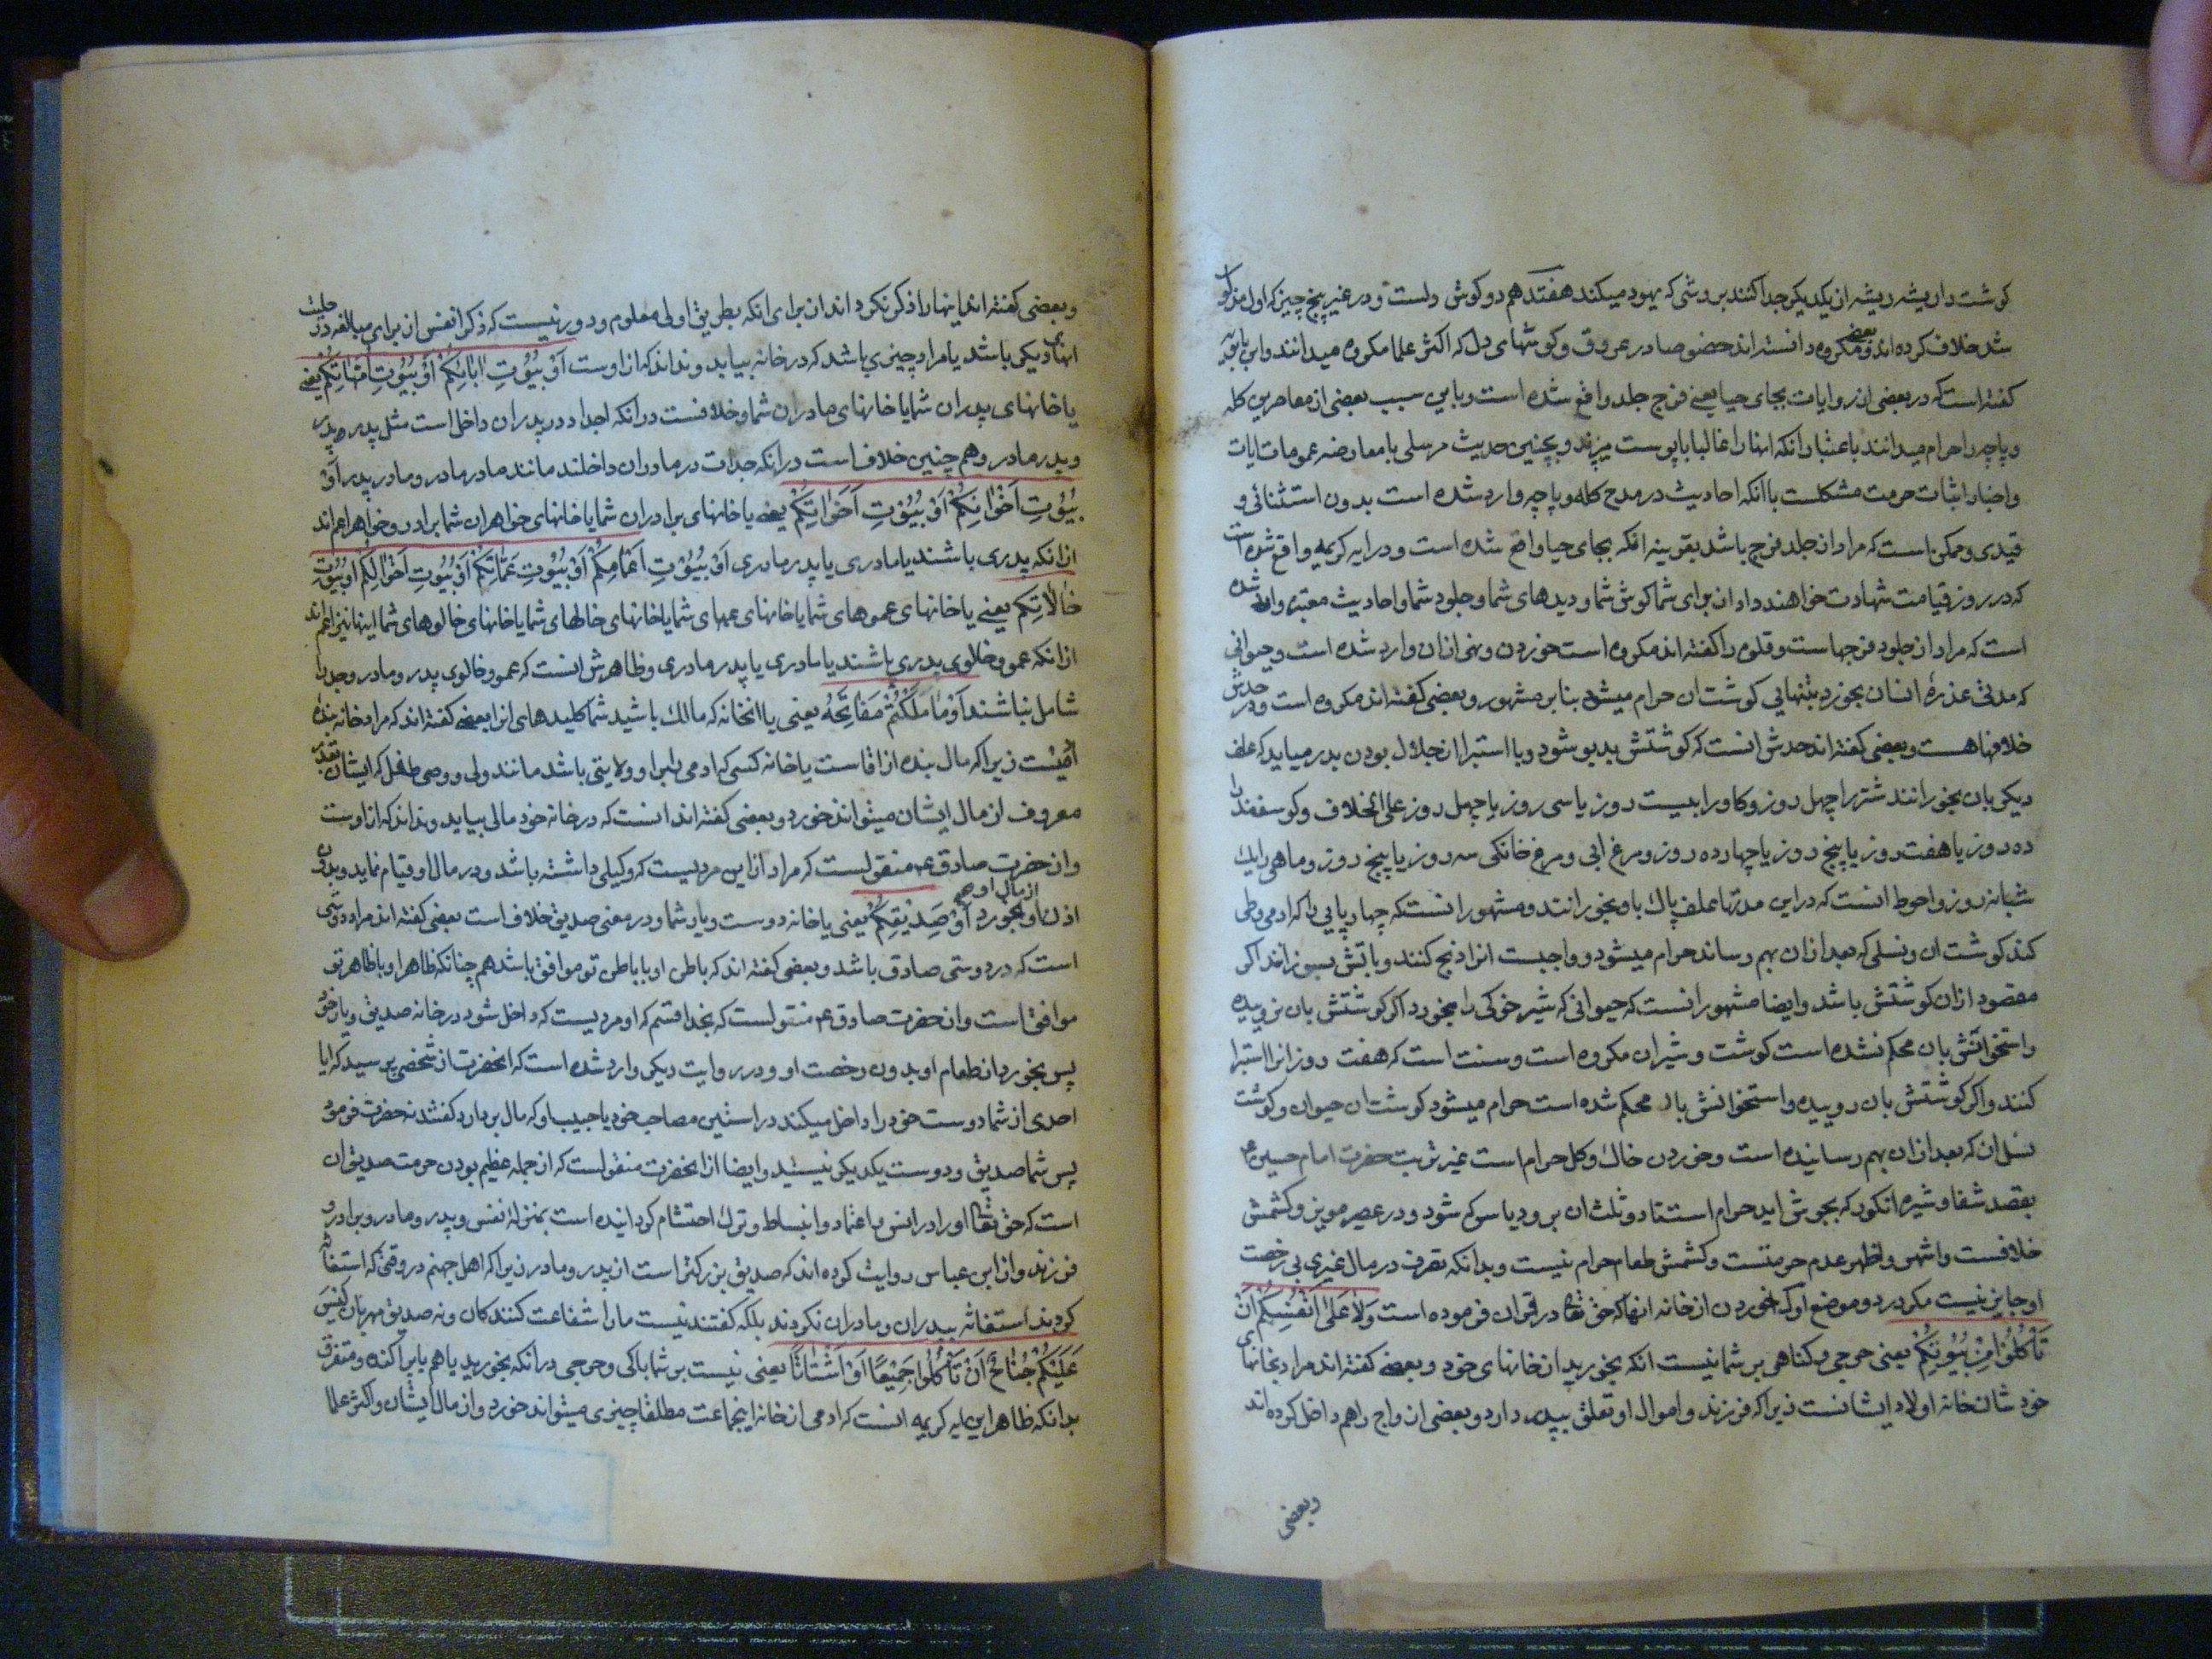 کوشت دا ریشه ریشه از یکدیکر جدا کنند بروشی که یهود میکنند هفتدهم دو کوش دلست و در غیر پنج چیز که اول مذکور
شد خلاف کرده اند و بعضی مکروه دانسته اند حضوصا در عروق و کوشهای دل که اکثر علما مکروه میدانند و ابن بابویه
کفته است که در بعضی از روایات بجای حیا یعنی فرج جلد واقع شده است و باین سبب بعضی از معاصرین کله
و پاچه را حرام میدانند باعتبار انکه انها را غالبا با پوست میپزند و بچنین حدیث مرسلی با معارضه عمومات ایات
و اخبار اثبات حرمت مشکلست با انکه احادیث در مدح کله و پاچه وارد شده است بدون استثنائی و
قیدی و ممکن است که مراد از جلد فرج باشد بقرینه انکه بجای حیا واقع شده است و در ایه کریمه واقع شده است
که در روز قیامت شهادت خواهند داد از برای شما کوش شما و دیدهای شما و جلود شما و احادیث معتبره وارد شده
است که مراد از جلود فرجهاست و قلوه را کفته اند مکروه است خوردن و نهی از ان وارد شده است و حیوانی
که مدتی عذرهٔ انسان بخورد بتنهایی کوشت ان حرام میشود بنا بر مشهور و بعضی کفته اند مکروه است و در حدش
خلافها هست و بعضی کفته اند حدش انست که کوشتش بدبو شود و با استبرا از جلال بودن بدر میاید که علف
دیکر بان بخورانند شتر را چهل روز و کاو را بیست روز یا سی روز یا چهل روز علی الخلاف و کوسفند را
ده روز یا هفت روز یا پنج روز یا چهارده روز و مرغ ابی و مرغ خانکی سه روز یا پنج روز و ماهی را یک
شبانه روز و احوط انست که در این مدتها علف پاک باو بخورانند و مشهور انست که چهارپایی را که ادمی وطی
کند کوشت ان و نسلی که بعد از ان بهم رساند حرام میشود و واجبست انرا ذبح کنند و باتش بسوزانند اکر
مقصود ازان کوشتش باشد و ایضا مشهور انست که حیوانی که شیر خوکی را بخورد اکر کوشتش بان نروییده
و استخوانش بان محکم نشده است کوشت و شیر ان مکروه است و سنت است که هفت روز انرا استبرا
کنند و اکر کوشتش بان روییده و استخوانش بان محکم شده است حرام میشود کوشت ان حیوان و کوشت
نسل ان که بعد ازان بهم رسانیده است و خوردن خاک و کل حرام است غیر تربت حضرت امام حسین ع
بقصد شفا و شیره انکور که بجوش اید حرام است تا دو ثلث ان برود یا سرکه شود و در عصیر مویز و کشمش
خلافست و اشهر و اظهر عدم حرمتست و کشمش طعام حرام نیست و بدانکه تصرف در مال غیری بی رخصت
او جایز نیست مکر در دو موضع اول خوردن از خانه انها که حق تعالی در قران فرموده است وَلَا عَلٰی اَنْفُسِکُمْ اَنْ
تَأْکُلُوا مِنْ بُیُوتِکُمْ یعنی حرجی و کناهی بر شما نیست انکه بخورید از خانهای خود و بعضی کفته اند مراد بخانهای
خودشان خانه اولاد ایشانست زیرا که فرزند و اموال او تعلق بپدر دارد و بعضی ازواج را هم داخل کرده اند
وبعضی
و بعضی کفته اند اینها را ذکر نکرده اند ان برای انکه بطریق اولی معلوم و دور نیست که ذکر انفس از برای مبالغه در حلیت
انهای دیکر باشد یا مراد چیزی باشد که در خانه بیابد و نداند که از اوست اَوْ بُیُوتِ اٰبَائِکُمْ اَوْ بُیُوتِ اُمَّهَاتِکُمْ یعنی
یا خانهای پدران شما یا خانهای مادران شما و خلافست در انکه اجداد در پدران داخل است مثل پدر پدر
و پدر مادر و هم چنین خلاف است در انکه جدات در مادران داخلند مانند مادر مادر و مادر پدر اَوْ
بُیُوتِ اِخْوَانِکُمْ اَوْ بُیُوتِ اَخَوَاتِکُمْ یعنی یا خانهای برادران شما یا خانهای خواهران شما برادر و خواهر اعم اند
از انکه پدری باشند یا مادری یا پدر مادری اَوْ بُیُوتِ اَعْمَامِکُمْ اَوْ بُیُوتِ عَمَّاتِکُمْ اَوْ بُیُوتِ اَخْوَالِکُمْ اَوْ بُیُوتِ
خَالَاتِکُمْ یعنی یا خانهای عموهای شما یا خانهای عمهای شما یا خانهای خالهای شما یا خانهای خالوهای شما اینها نیز اعم اند
از انکه عمو و خالوی پدری باشند یا مادری یا پدر مادری و ظاهرش انست که عمو و خالوی پدر و مادر و جد را
شامل نباشند اَوْ مَا مَلَکْتُمْ مَفَاتِحَهُ یعنی یا انخانه که مالک باشید شما کلیدهای انرا بعضی کفته اند که مراد خانه بنده
ادمیست زیرا که مال بنده از اقاست یا خانه کسی که ادمی را بر او ولایتی باشد مانند ولی و وصی طفل که ایشان بقدر
معروف از مال ایشان میتوانند خورد و بعضی کفته اند انست که در خانه خود مالی بیابد و نداند که از اوست
و از حضرت صادق ع منقولست که مراد از این مردیست که وکیلی داشته باشد و در مال او قیام نماید و بدون
اذن او از مال او بخورد اَوْ صَدِیقِکُمْ یعنی یا خانه دوست و یار شما و در معنی صدیق خلاف است بعضی کفته اند مراد دوستی
است که در دوستی صادق باشد و بعضی کفته اند که باطن او با باطن تو موافق باشد هم چنانکه ظاهر او با ظاهر تو
موافق است و از حضرت صادق ع منقولست که بخدا قسم که او مردیست که داخل شود در خانه صدیق و یار خود
پس بخورد از طعام او بدون رخصت او و در روایت دیکر وارد شده است که انحضرت از شخصی پرسید که ایا
احدی از شما دوست خود را داخل میکند در استین مصاحب خود یا جیب او که مال بردارد کفتند نه حضرت فرمود
پس شما صدیق و دوست یکدیکر نیستید و ایضا از انحضرت منقولست که از جمله عظیم بودن حرمت صدیق ان
است که حق تعالی او را در انس و اعتماد و انبساط و ترک احتشام کردانیده است بمنزله نفس و پدر و مادر و برادر و
فرزند و از ابن عباس روایت کرده اند که صدیق بزرکتر است از پدر و مادر زیرا که اهل جهنم در وقتی که استغاثه
کردند استغاثه بپدران و مادران نکردند بلکه کفتند نیست ما را شفاعت کنندکان و نه صدیق مهربان لَیْسَ
عَلَیْکُمْ جُنَاحٌ اَنْ تَأْکُلُوا جَمِیعًا اَوْ اَشْتَاتًا یعنی نیست بر شما باکی و حرجی در انکه بخورید با هم یا پراکنده و متفرق
بدانکه ظاهر این ایه کریمه انست که ادمی از خانه اینجماعت مطلقا چیزی میتواند خورد و از مال ایشان و اکثر علما